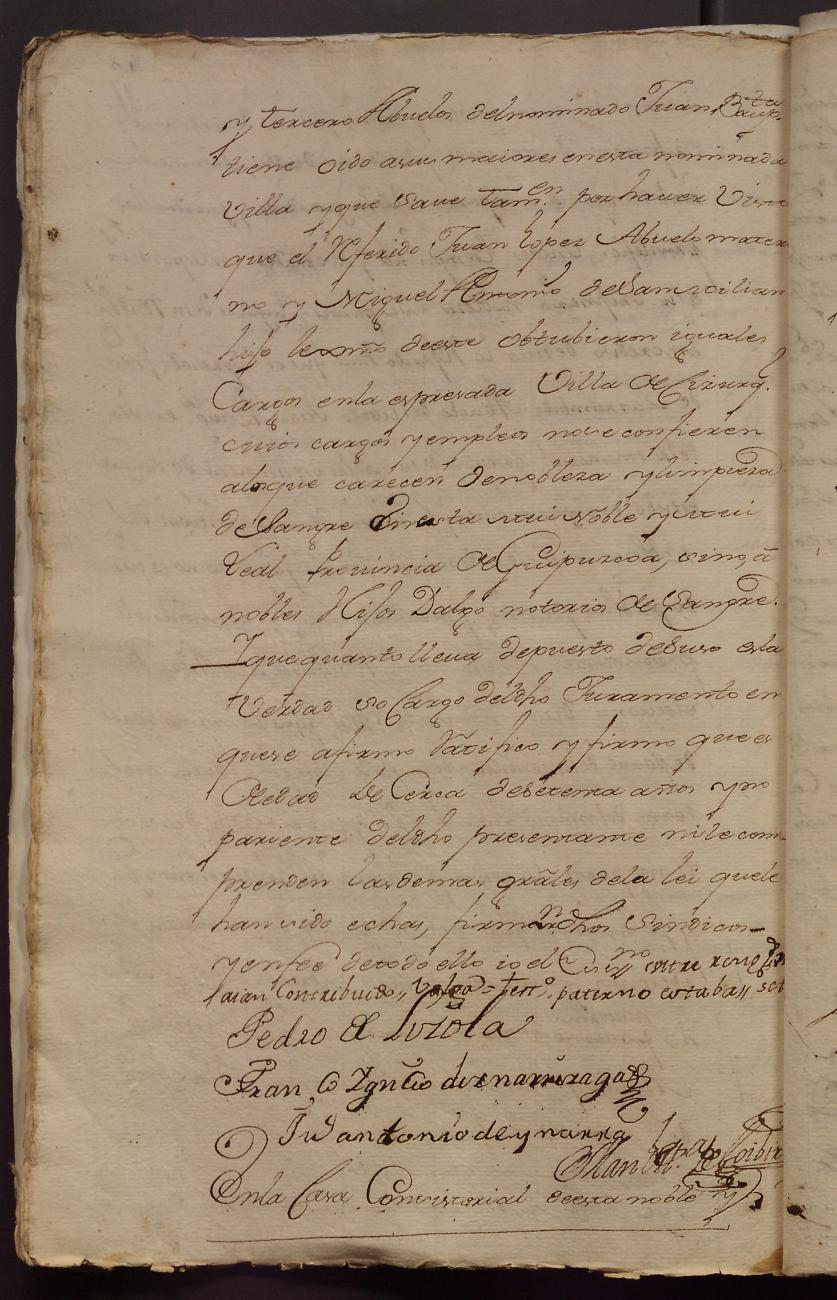 y tercero Abuelos delnominado Juan Bapta
tiene oido asus maiores enesta nominada
Villa y que save tamen. por haver Visto
que el Referido Juan Lopez Abuelo mater
no y Miguel Antonio deSansicilian
hijo lexmo. deeste obtubieron iguales
Cargos enla espresada Villa de Cizurql.
cuios cargos yempleos nose confieren
alosque carecen denobleza ylimpieza
deSangre Enesta mui Noble y mui
Leal Provincia de Guipuzcoa, sino, a
nobles Hijos Dalgo notorios de Sangre.
Y quequanto lleva depuesto desuso esla
Verdad so Cargo deldho Juramento en
quese afirmo Ratifico y firmo quees
de edad de Cerca desetenta años y no
pariente deldho presentante nile com-
prenden lasdemas grales dela lei quele
hansido echas, firmaron dhos Sindicos
yenfee detodo ello io el Essno entre reng
aian Contribuido,, Valga= paterno estaba,,
Pedro de Loiola
Franco Ignacio de Ynarriraga
Juo antonio de ynarra
Enla Casa Concistorial deesta noble y